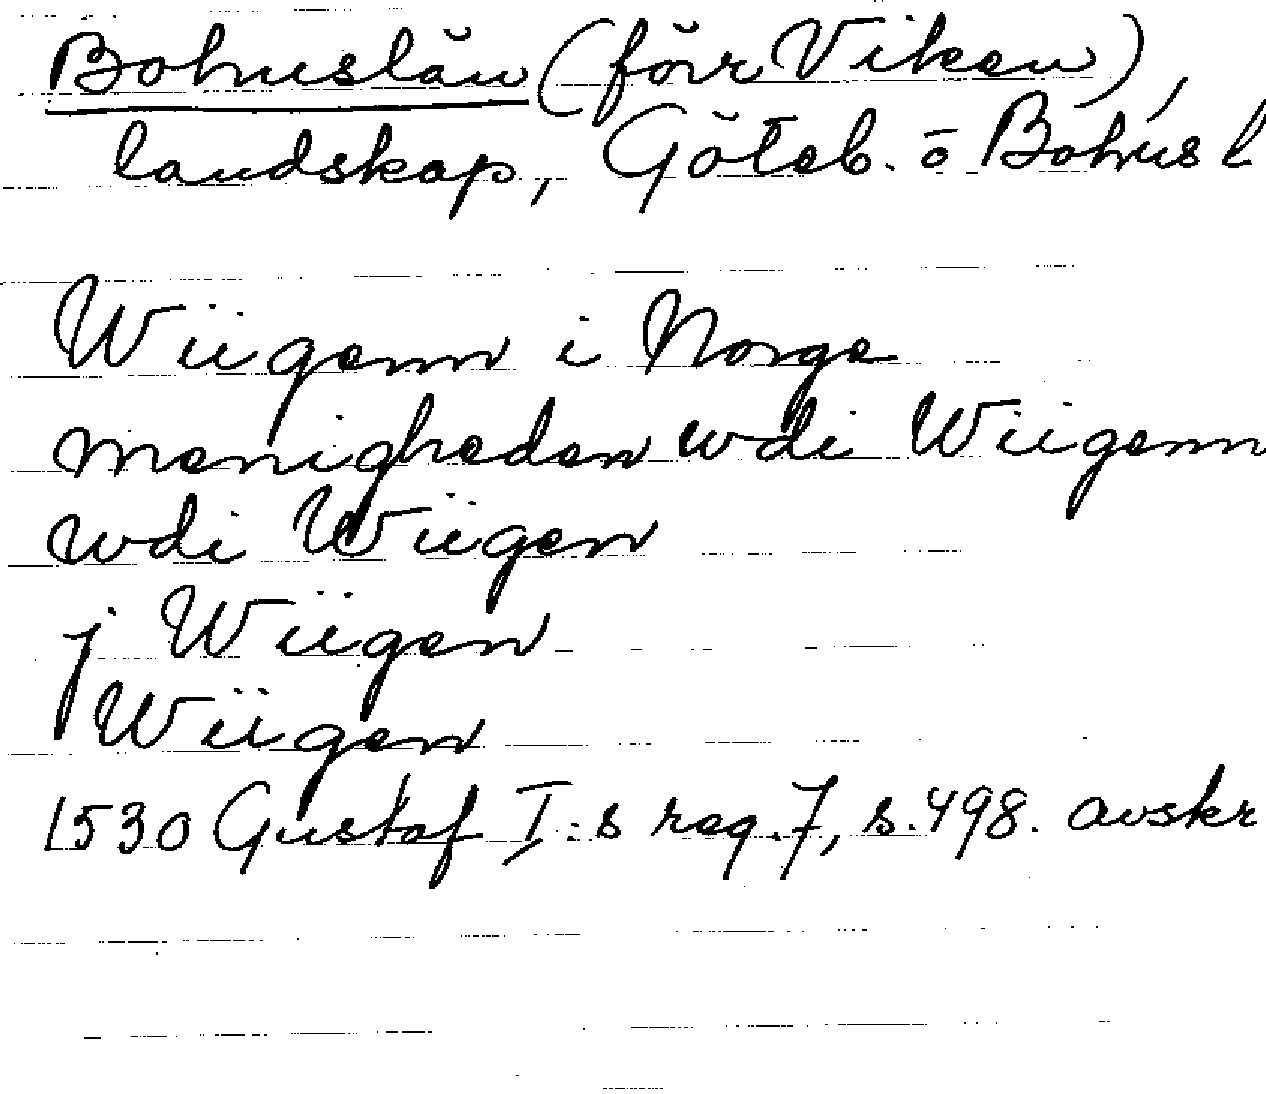 Bohuslän (förr Viken),
landskap, Göteb. o Bohus l
Wiigenn i Norge
menigheden wdi Wiigenn
wdi Wiigen
j Wiigen
Wiigen
1530 Gustaf I:s reg. 7, s. 498. avskr